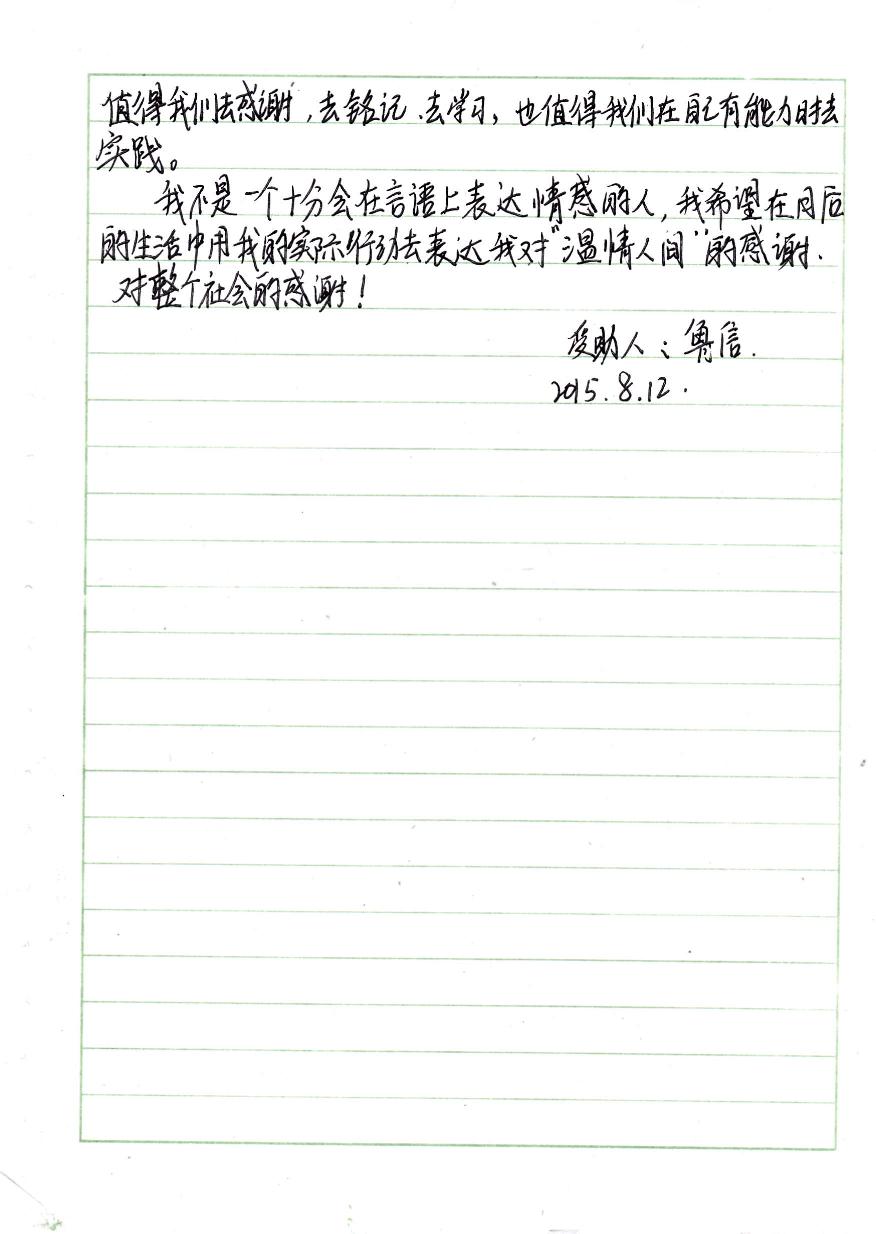 值得我们去感谢,去铭记、去学习,也值得我们在自己有能力时去
实践。
我不是一个十分会在言语上表达情感的人,我希望在日后
的生活中用我的实际行动去表达我对“温情人间”的感谢.
对整个社会的感谢!
受助人:鲁信.
2015.8.12.